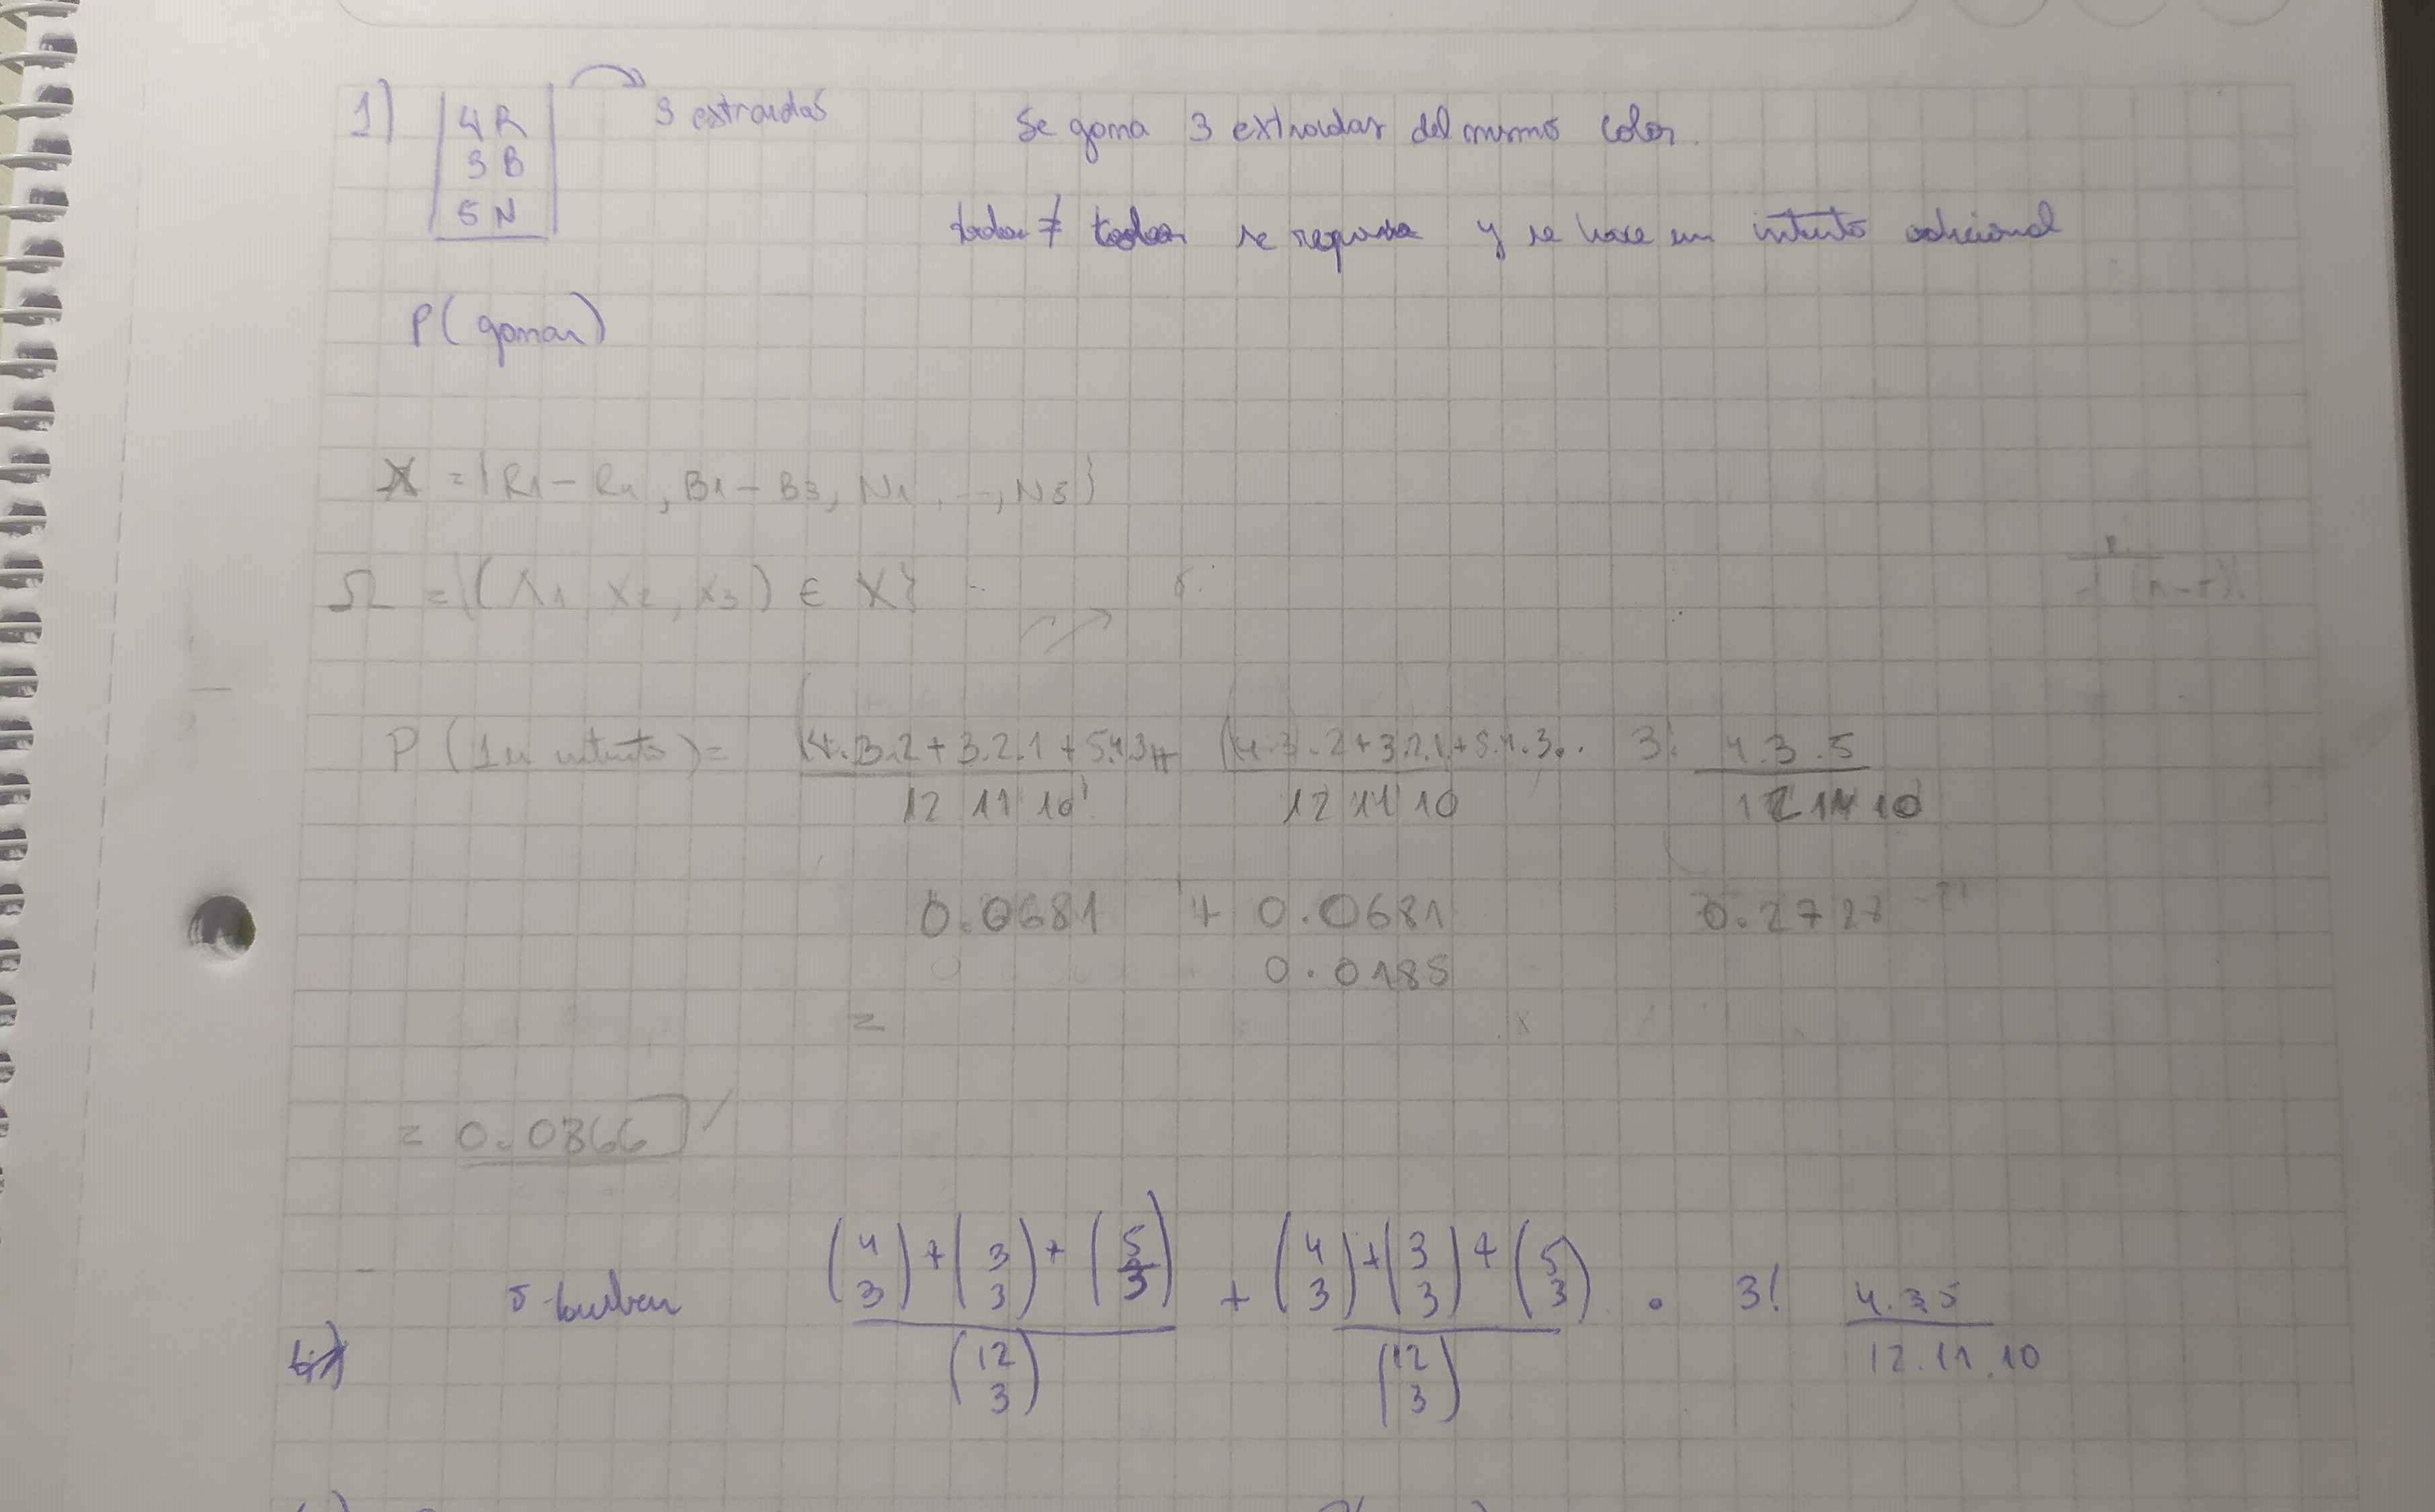 1) 4R 3 extraidas Se gana 3 extraidas del mismo color.
3 B
5 N
todas ≠ se repone y se hace un intento adicional
P(ganar)
X = {R1 – R4, B1 – B3, N1, ..., N5}
Ω = {(X1, X2, X3) ∈ X}
(n-r)!
P(1er intento) = (4.3.2 + 3.2.1 + 5.4.3 + (4.3.2 + 3.2.1 + 5.4.3 . 3! 4.3.5
12 11 10 12 11 10 12 11 10
0.0681 + 0.0681 0.2727
0.0185
=
= 0.0866
(4 3) + (3 3) + (5 3) + (4 3) + (3 3) + (5 3) . 3! 4.3.5
(12 3) (12 3) 12.11.10